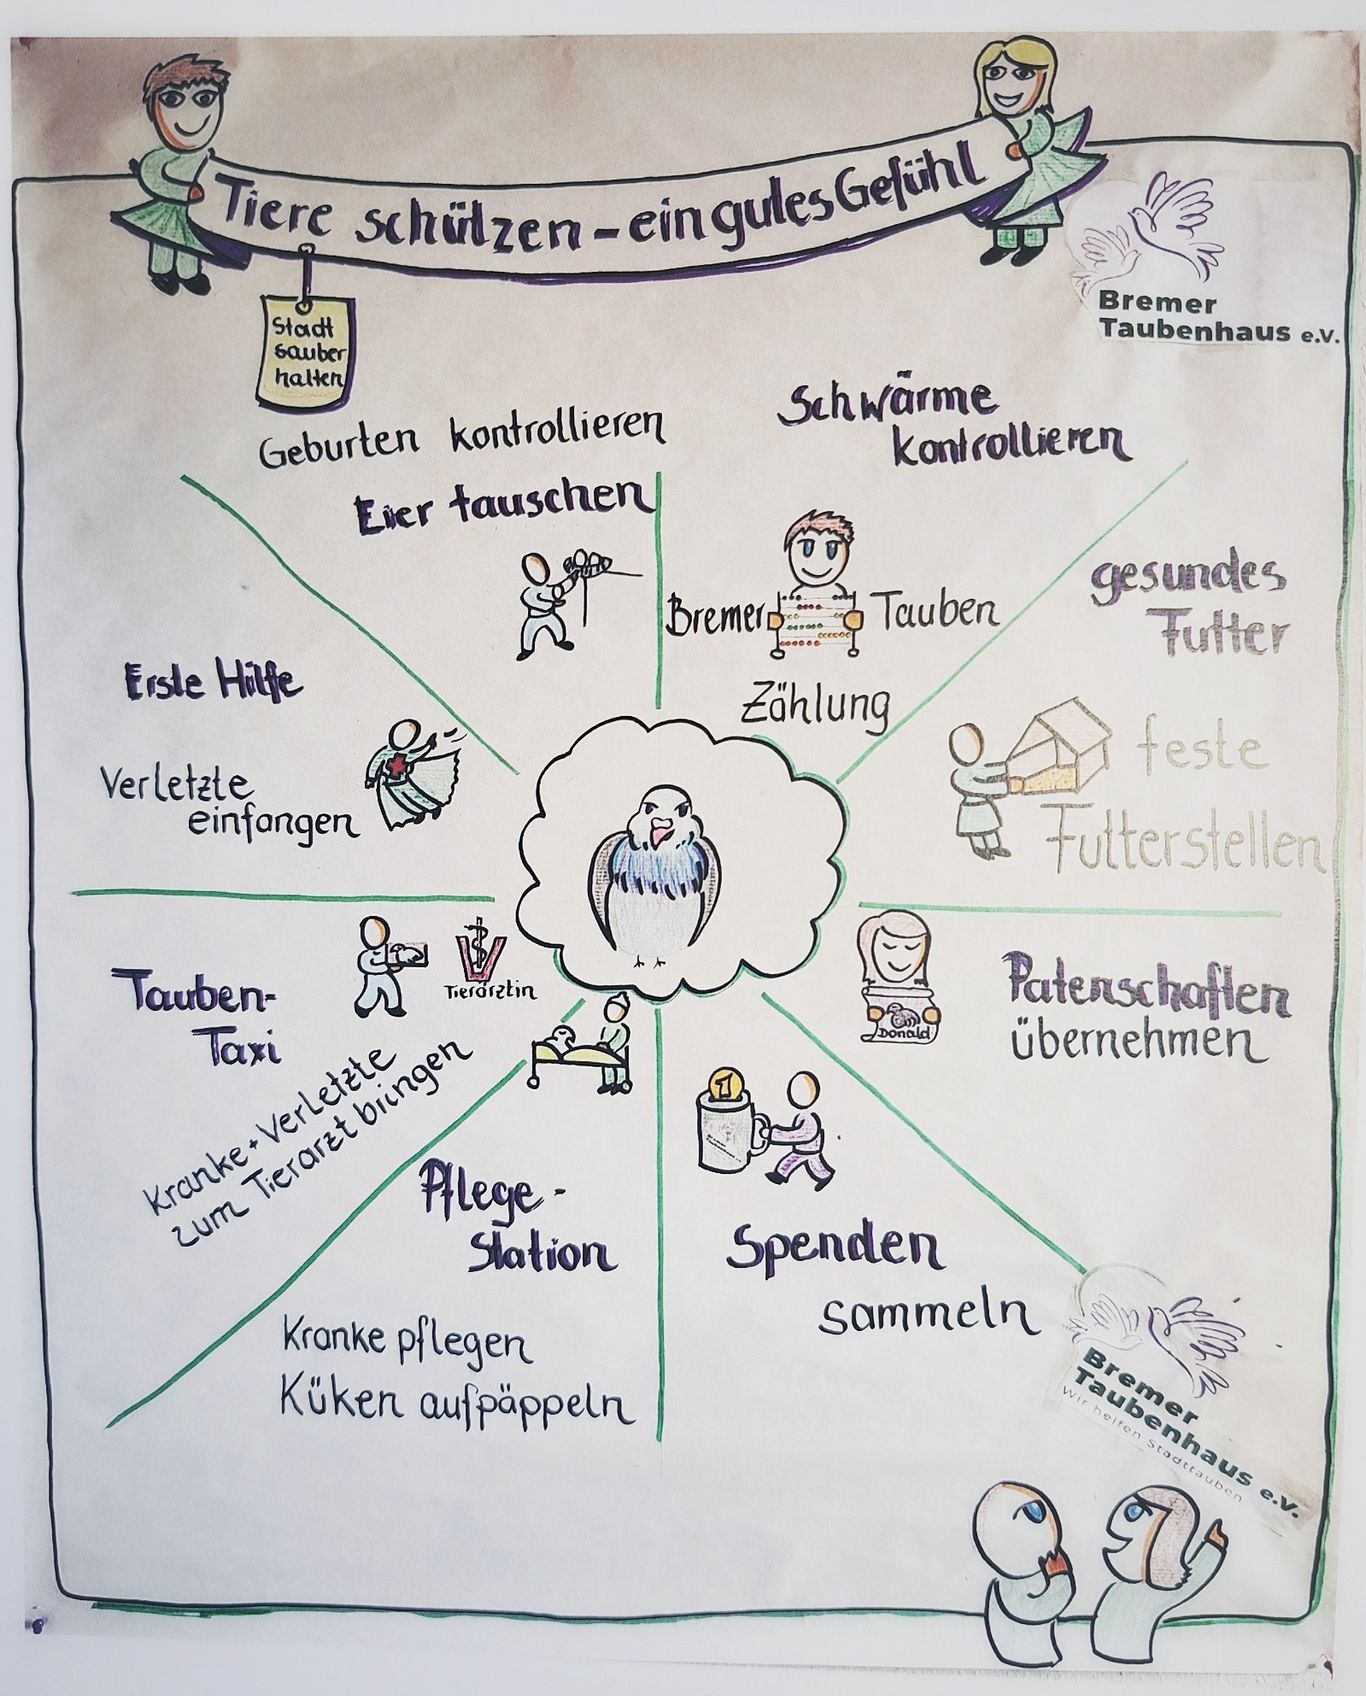 Tiere schützen - ein gutes Gefühl
Stadt
sauber
halten
Bremer
Taubenhaus e.V.
Geburten kontrollieren
Eier tauschen
Schwärme
kontrollieren
Bremer Tauben
Zählung
gesundes
Futter
feste
Futterstellen
Erste Hilfe
Verletzte
einfangen
Tauben-
Taxi
Tierärztin
Kranke + Verletzte
zum Tierarzt bringen
Donald
Patenschaften
übernehmen
Pflege-
Station
Kranke pflegen
Küken aufpäppeln
1
Spenden
sammeln
Bremer
Taubenhaus e.V.
Wir helfen Stadttauben